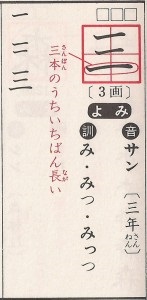 三
〔3画〕
よみ
音 サン 〔三年〕
さんねん
訓 み・みつ・みっつ
三本のうちいちばん長い
さんぼん
なが
一 二 三